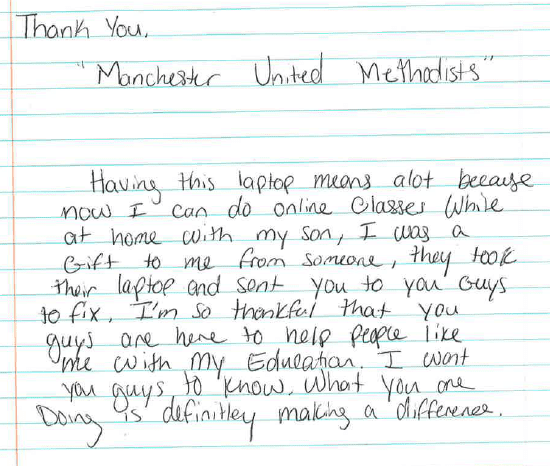 Thank You,
"Manchester United Methodists"
Having this laptop means alot because
now I can do online Classes While
at home with my son, I was a
Gift to me from someone, they took
their laptop and sent you to you Guys
to fix. I'm so thankful that you
guys are here to help people like
me with my Education. I want
you guys to know. What you are
Doing is definitley making a difference.